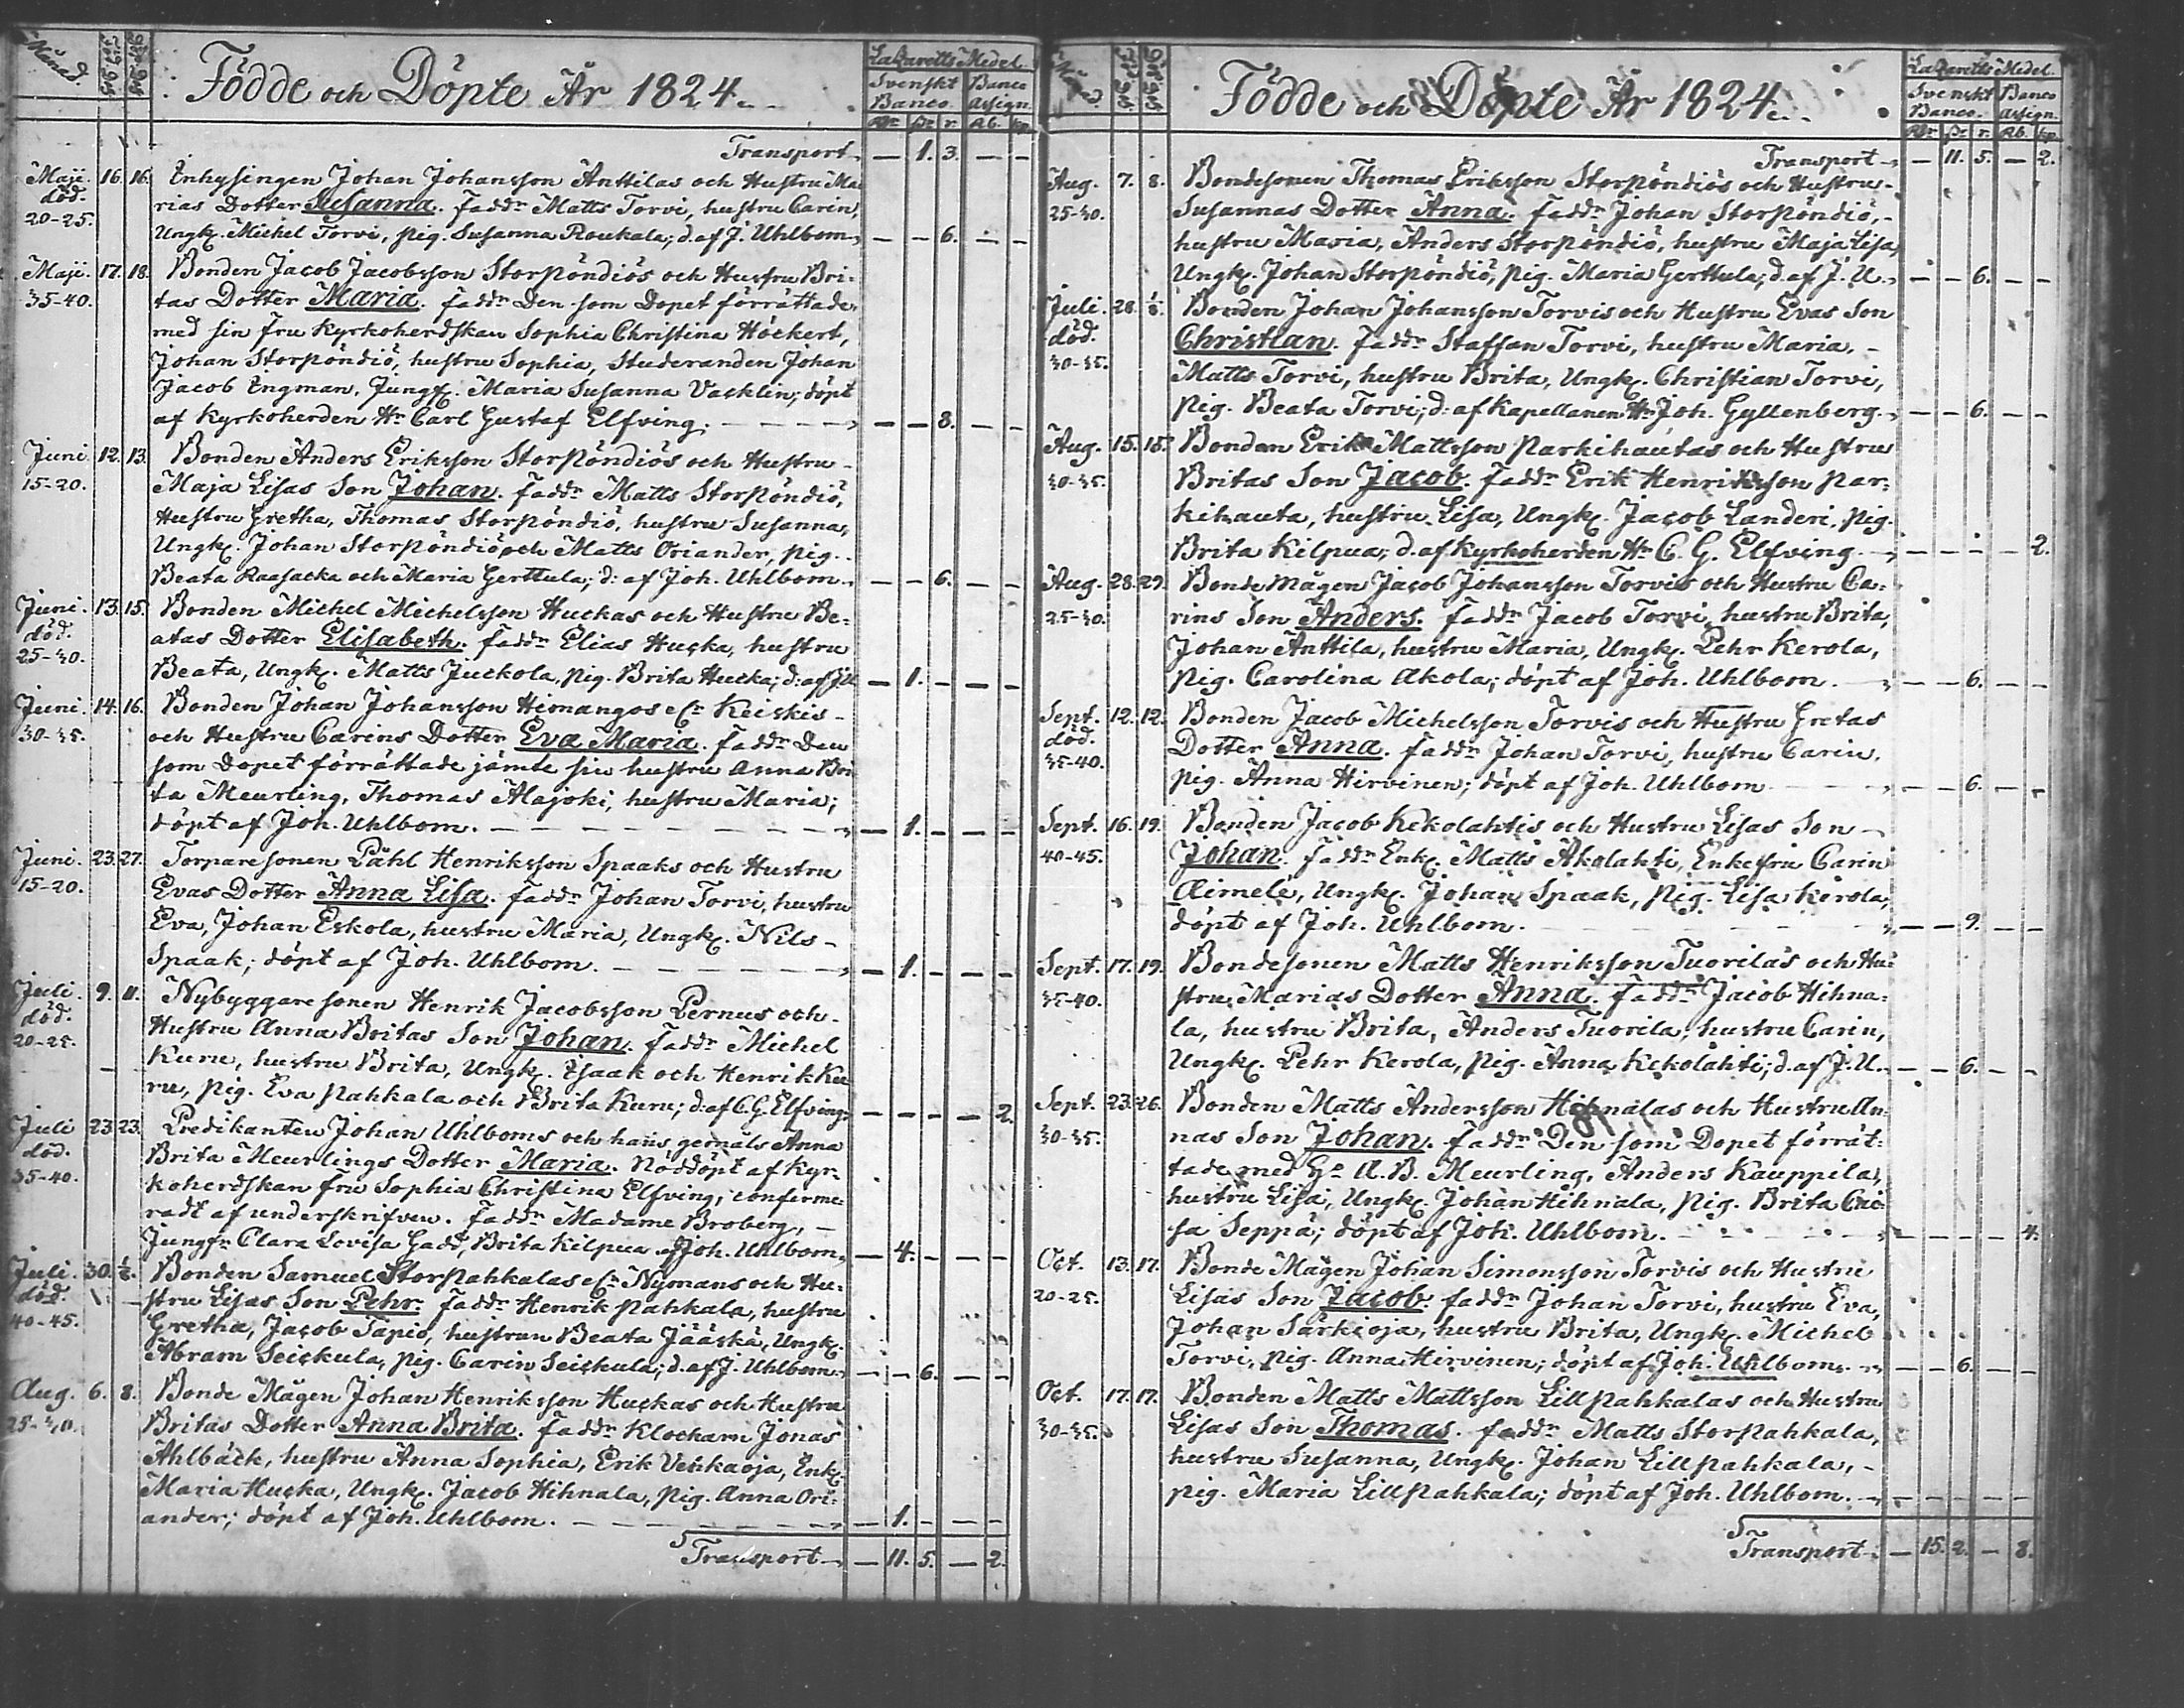 Månad.
Födde och Döpte År 1824.
Lazaretts Medel.
Svenskt Banco
Banco. assign.
Rdr sk. r. Rb. kp.
Transport — 1. 3. — —
Maji. 16. 16. Inhysingen Johan Johansson Anttilas och Hustru Ma-
död. rias Dotter Susanna. Faddr Matts Torvi, hustru Carin,
20-25. Ungk. Michel Torvi, pig. Susanna Roukala; d. af J. Uhlbom — — 6. — —
Maji. 17. 18. Bonden Jacob Jacobsson Storpöndiös och Hustru Bri-
35-40. tas Dotter Maria. Faddr Den som Dopet förrättade,
med sin fru Kyrkoherdskan Sophia Christina Höckert,
Johan Storpöndiö, hustru Sophia, Studeranden Johan
Jacob Engman, Jungf. Maria Susanna Vacklin; döpt
af Kyrkoherden Hr Carl Gustaf Elfving. — — 8. — —
Juni. 12. 13. Bonden Anders Eriksson Storpöndiös och Hustru
15-20. Maja Lisas Son Johan. Faddr Matts Storpöndiö,
Hustru Gretha, Thomas Storpöndiö, hustru Susanna,
Ungk. Johan Storpöndiö och Matts Oriander, pig.
Beata Raasacka och Maria Gerttula; d: af Joh. Uhlbom. — — 6. — —
Juni. 13. 15. Bonden Michel Michelsson Huckas och Hustru Be-
död. atas Dotter Elisabeth. Faddr Elias Hucka, hustru
25-30. Beata, Ungk. Matts Juckola, pig. Brita Hucka; d: af J.U. — 1. — — —
Juni. 14. 16. Bonden Johan Johansson Himangos eller Keiskis
30-35. och Hustru Carins Dotter Eva Maria. Faddr Den
som Dopet förrättade jämte sin hustru Anna Bri
ta Meurling, Thomas Alajoki, hustru Maria;
döpt af Joh. Uhlbom. — 1. — — —
Juni. 23. 27. Torparesonen Påhl Henriksson Spaaks och Hustru
15-20. Evas Dotter Anna Lisa. Faddr Johan Torvi, hustru
Eva, Johan Eskola, hustru Maria, Ungk. Nils
Spaak; döpt af Joh. Uhlbom. — 1. — — —
Juli. 9. 11. Nybyggaresonen Henrik Jacobsson Pernus och
död. Hustru Anna Britas Son Johan. Faddr Michel
20-25. Kuru, hustru Brita, Ungk. Isaak och Henrik Ku
ru, pig. Eva Pahkala och Brita Kuru; d. af C. G. Elfving. — — — — 2.
Juli 23. 23. Predikanten Johan Uhlboms och hans gemåls Anna
död. Brita Meurlings Dotter Maria. Nöddöpt af Kyr-
35-40. koherdskan fru Sophia Christina Elfving, conferme-
radt af underskrifven. Faddr Madame Broberg,
Jungfr Clara Lovisa Gadd, Brita Kilpua. Joh. Uhlbom. — 4. — — —
Juli. 30. 1/8. Bonden Samuel Storpahkalas eller Nymans och Hu-
död. stru Lisas Son Pehr. Faddr Henrik Pahkala, hustru
40-45. Gretha, Jacob Tapio, hustrun Beata Jääskä, Ungk.
Abram Seickula, pig. Carin Seickula; d. af J. Uhlbom. — — 6. — —
Aug. 6. 8. Bonde Mågen Johan Henriksson Huckas och Hustru
25-30. Britas Dotter Anna Brita. Faddr Klockarn Jonas
Ahlbäck, hustru Anna Sophia, Erik Vehkaoja, Enk.
Maria Hucka, Ungk. Jacob Hihnala, pig. Anna Ori-
ander; döpt af Joh. Uhlbom. — 1. — — —
Transport — 11. 5. — 2.
Födde och Döpte År 1824.
Lazaretts Medel.
Svenskt Banco
Banco. assign.
Rdr sk. r. Rb. kp.
Transport — 11. 5. — 2.
Aug. 7. 8. Bondesonen Thomas Eriksson Storpöndiös och Hustru
25-30. Susannas Dotter Anna. Faddr Johan Storpöndiö,
hustru Maria, Anders Storpöndiö, hustru Maja Lisa,
Ungk. Johan Storpöndiö, pig. Maria Gerttula; d. af J. U. — — 6. — —
Juli. 28. 1/8. Bonden Johan Johansson Torvis och Hustru Evas Son
död. Christian. Faddr Staffan Torvi, hustru Maria,
30-35. Matts Torvi, hustru Brita, Ungk. Christian Torvi,
pig. Beata Torvi; d: af Kapellanen Hr Joh. Gyllenberg. — — 6. — —
Aug. 15. 15. Bonden Erik Mattsson Parkihautas och Hustru
30-35. Britas Son Jacob. Faddr Erik Henriksson Par-
kihauta, hustru Lisa, Ungk. Jacob Landeri, pig.
Brita Kilpua; d. af Kyrkoherden Hr C. G. Elfving. — — — — 2.
Aug. 28. 29. Bonde Mågen Jacob Johansson Torvis och Hustru Ca-
25-30. rins Son Anders. Faddr Jacob Torvi, hustru Brita,
Johan Anttila, hustru Maria, Ungk. Pehr Kerola,
pig. Carolina Akola; döpt af Joh. Uhlbom. — — 6. — —
Sept. 12. 12. Bonden Jacob Michelsson Torvis och Hustru Gretas
död. Dotter Anna. Faddr Johan Torvi, hustru Carin,
35-40. pig. Anna Hirvinen; döpt af Joh. Uhlbom. — — 6. — —
Sept. 16. 19. Bonden Jacob Kekolahtis och Hustru Lisas Son
40-45. Johan. Faddr Enkl. Matts Akolahti, Enkefru Carin
Aimele, Ungk. Johan Spaak, pig. Lisa Kerola,
döpt af Joh. Uhlbom. — — 9. — —
Sept. 17. 19. Bondesonen Matts Henriksson Tuorilas och Hu-
35-40. stru Marias Dotter Anna. Faddr Jacob Hihna-
la, hustru Brita, Anders Tuorila, hustru Carin,
Ungk. Pehr Kerola, pig. Anna Kekolahti; d. af J. U. — — 6. — —
Sept. 23. 26. Bonden Matts Andersson Hihnalas och Hustru An-
30-35. nas Son Johan. Faddr Den som Dopet förrät-
tade med Gr A. B. Meurling, Anders Kauppila,
hustru Lisa, Ungk. Johan Hihnala, pig. Brita Cai-
sa Seppä; döpt af Joh. Uhlbom. — — — — 4.
Oct. 13. 17. Bonde Mågen Johan Simonsson Torvis och Hustru
20-25. Lisas Son Jacob. Faddr Johan Torvi, hustru Eva,
Johan Särkioja, hustru Brita, Ungk. Michel
Torvi, pig. Anna Hirvinen; döpt af Joh. Uhlbom. — — 6. — —
Oct. 17. 17. Bonden Matts Mattsson Lillpahkalas och Hustru
30-35. Lisas Son Thomas. Faddr Matts Storpahkala,
hustru Susanna, Ungk. Johan Lillpahkala,
pig. Maria Lillpahkala; döpt af Joh. Uhlbom. — — — — —
Transport — 15. 2. — 8.